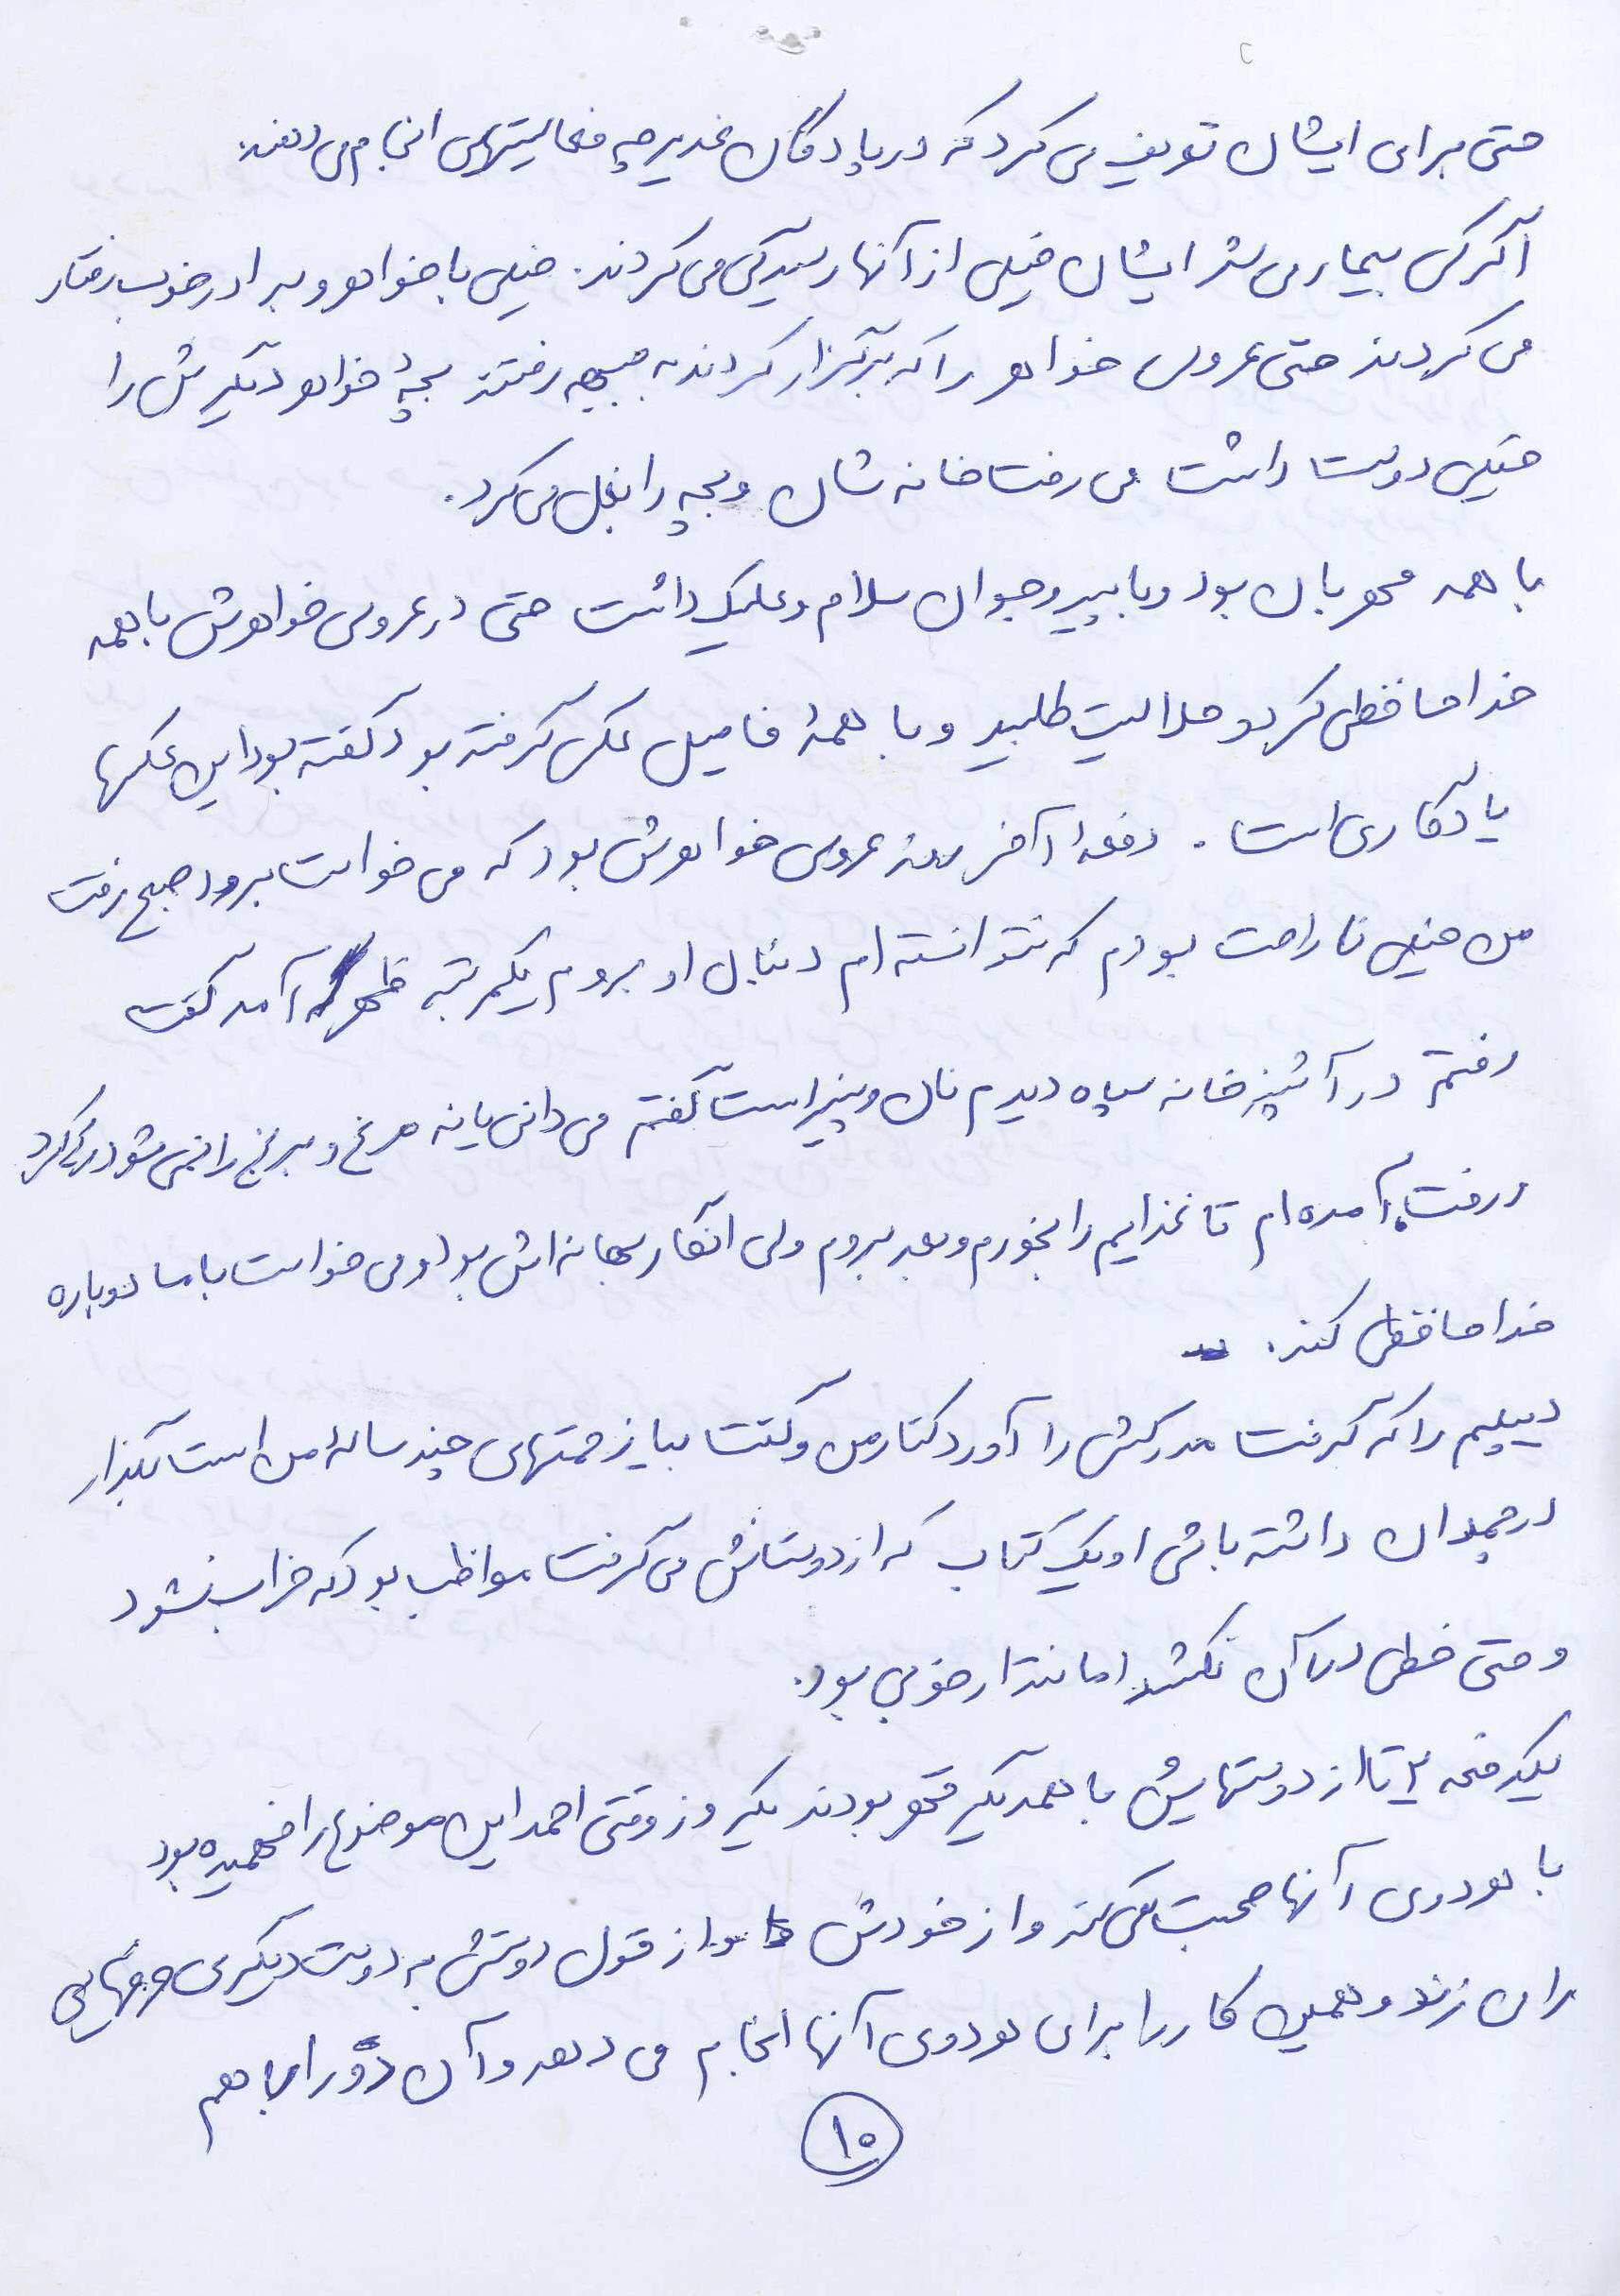 حتی برای ایشان تعریف می کرد که در پادگان غدیر چه فعالیتهای انجام می دهند.
اگر کسی بیمار می شد ایشان خیلی از آنها رسیدگی می کردند. خیلی با خواهر و برادر خوب رفتار
می کردند حتی عروسی خواهر را که برگزار کردند به جبهه رفتند بچۀ خواهر دیگرش را
خیلی دوست داشت می رفت خانه شان و بچه را بغل می کرد.
با همه مهربان بود و با پیر و جوان سلام و علیک داشت حتی در عروسی خواهرش با همه
خداحافظی کرد و حلالیت طلبید و با همۀ فامیل عکس گرفته بود گفته بود این عکسها
یادگاری است. دفعۀ آخر عروسی خواهرش بود که می خواست برود صبح رفت
من خیلی ناراحت بودم که نتوانسته ام دنبال او بروم یکمرتبه ظهر آمد گفت
رفتم در آشپزخانه سپاه دیدم نان و پنیر است گفتم می دانی یا نه مرغ و برنج را نمی شود
در رفت آمده ام تا غذایم را بخورم و بعد بروم ولی انگار بهانه اش بود او می خواست با ما دوباره
خداحافظی کند.
دیپلم را که گرفت مدرکش را آورد کنار من و گفت بیا زحمتهای چند سالۀ من است بگذار
در چمدان داشته باشی او یک کتاب که از دوستانش می گرفت مواظب بود که خراب نشود
و حتی خطی در آن نکشد امانتدار خوبی بود.
یکدفعه ۲ تا از دوستهایش با همدیگر قهر بودند یکروز وقتی احمد این موضوع را فهمیده بود
با هر دوی آنها صحبت می کند و از خودش و از قول دوستش به دوست دیگری حرفهایی
را می زند و همین کار را برای هر دوی آنها انجام می دهد و آن دو را با هم
۱۰